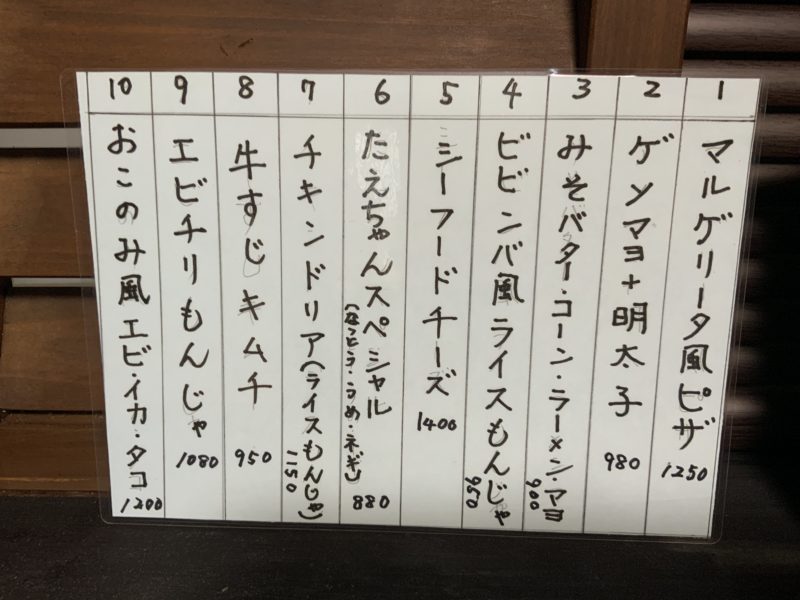 1
マルゲリータ風ピザ
1250
2
ゲンマヨ+明太子
980
3
みそバター・コーン・ラーメン・マヨ
900
4
ビビンバ風ライスもんじゃ
950
5
シーフードチーズ
1400
6
たえちゃんスペシャル
(なっとう・うめ・ネギ)
880
7
チキンドリア(ライスもんじゃ)
1150
8
牛すじキムチ
950
9
エビチリもんじゃ
1080
10
おこのみ風エビ・イカ・タコ
1200